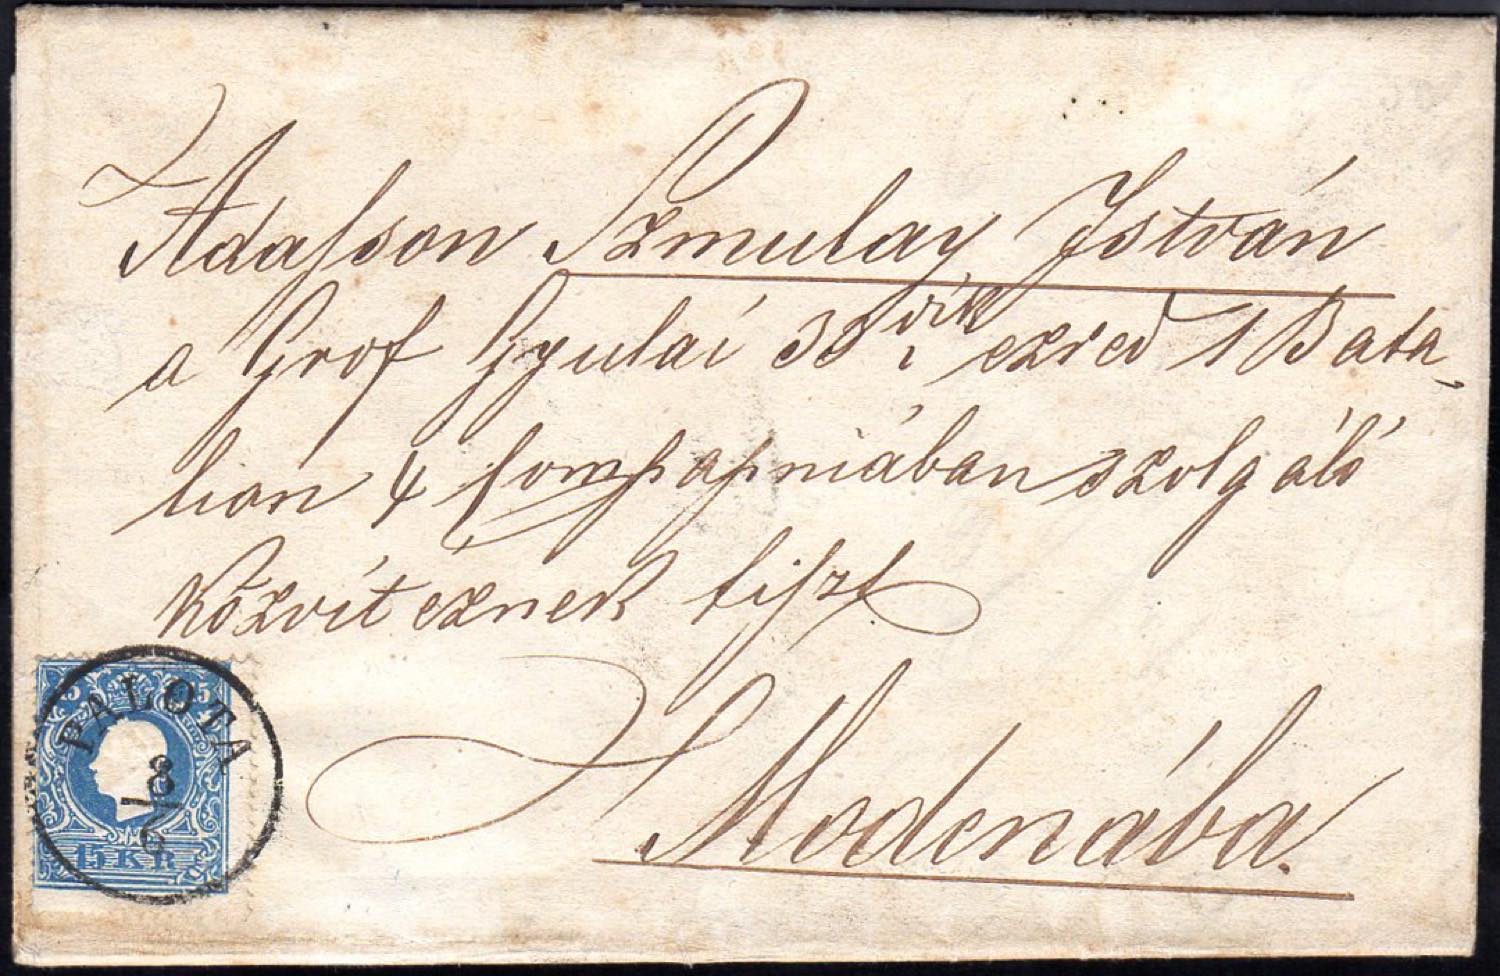 Adasson Szmulay István
a Gróf Gyulai 33 dik ezred 1 Bata,
lion 4 Compapniában szolgáló
Közvitéznek tiszt
Modenába.
15 15
PALOTA
8/6
15 KR